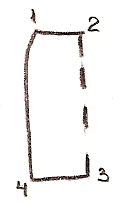 1 2
4 3